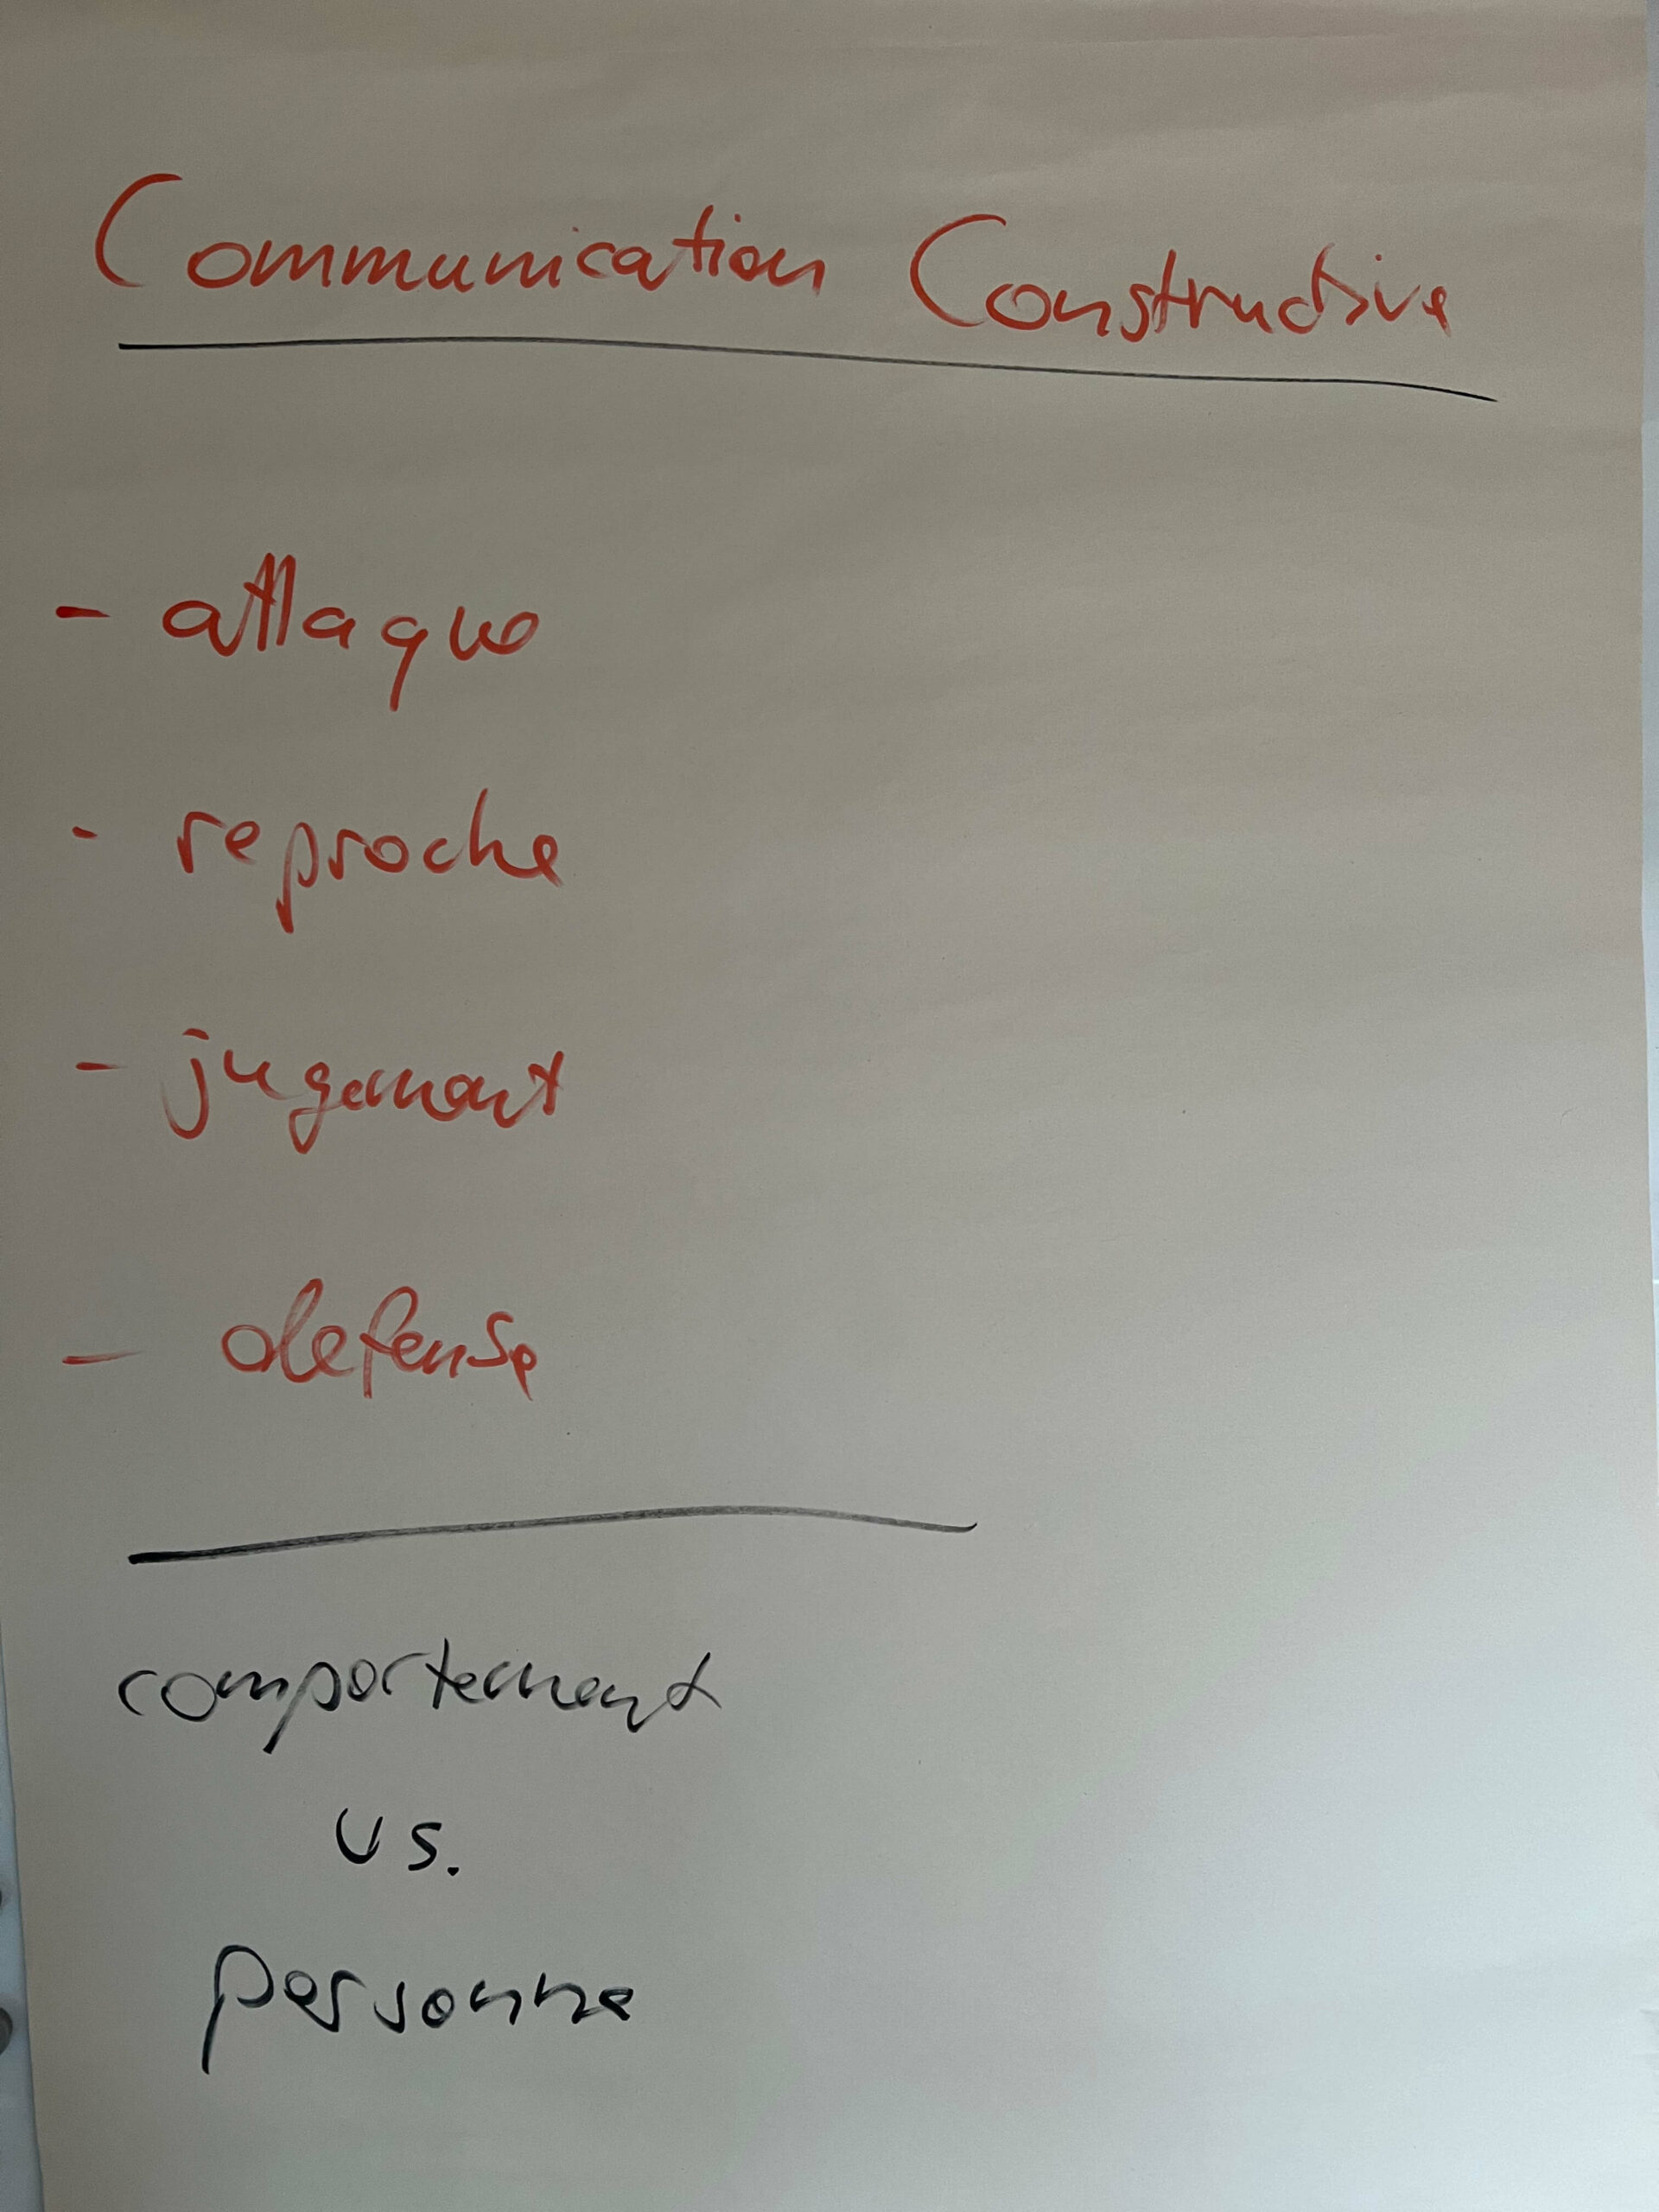 Communication Constructive
- attaque
- reproche
- jugement
- defense
comportement
vs.
personne